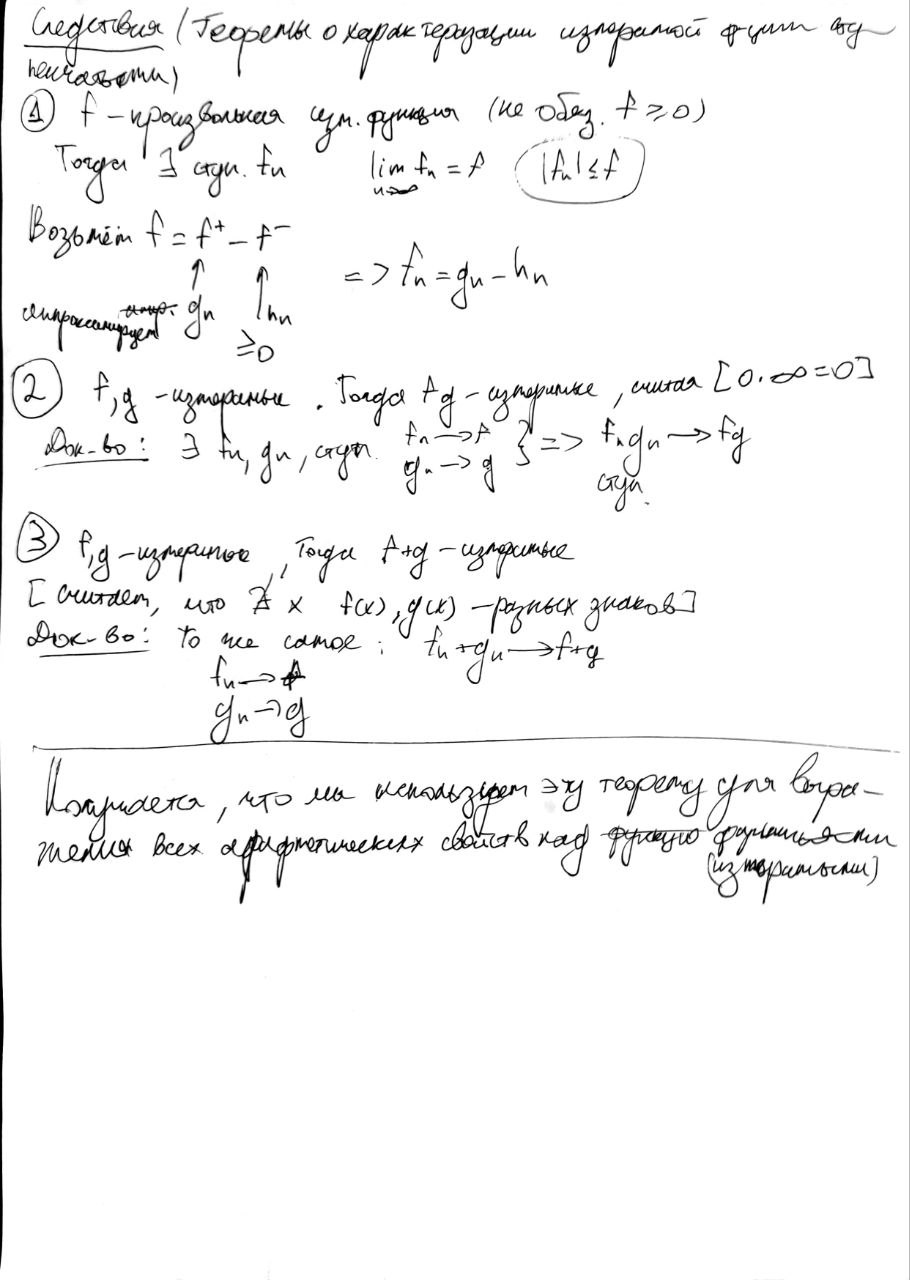 Следствия (Теоремы о характеризации измеримой функции сту
пенчатыми)
① f – произвольная изм. функция (не обяз. f ≥ 0)
Тогда ∃ ступ. fn lim n→∞ fn = f |fn| ≤ f
Возьмём f = f⁺ – f⁻
=> fn = gn – hn
аппроксимирует gn hn
≥0
② f, g – измеримые. Тогда fg – измеримые, считая [0·∞=0]
Док-во: ∃ fn, gn, ступ. fn → f gn → g } => fn gn → fg
ступ.
③ f, g – измеримые, Тогда f+g – измеримые
[Считаем, что ∄ x f(x), g(x) – разных знаков]
Док-во: то же самое: fn + gn → f+g
fn → f
gn → g
Получается, что мы используем эту теорему для выра–
жения всех арифметических свойств над функциями
(измеримыми)